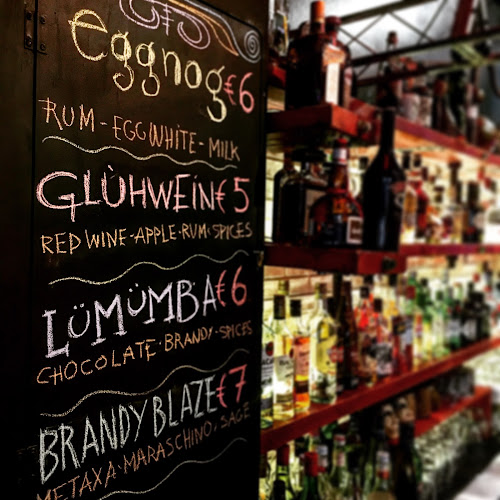 eggnog €6
RUM - EGGWHITE - MILK
GLÙHWEIN €5
RED WINE - APPLE - RUM - SPICES
LÜMÜMBA €6
CHOCOLATE - BRANDY - SPICES
BRANDY BLAZE €7
METAXA - MARASCHINO, SAGE